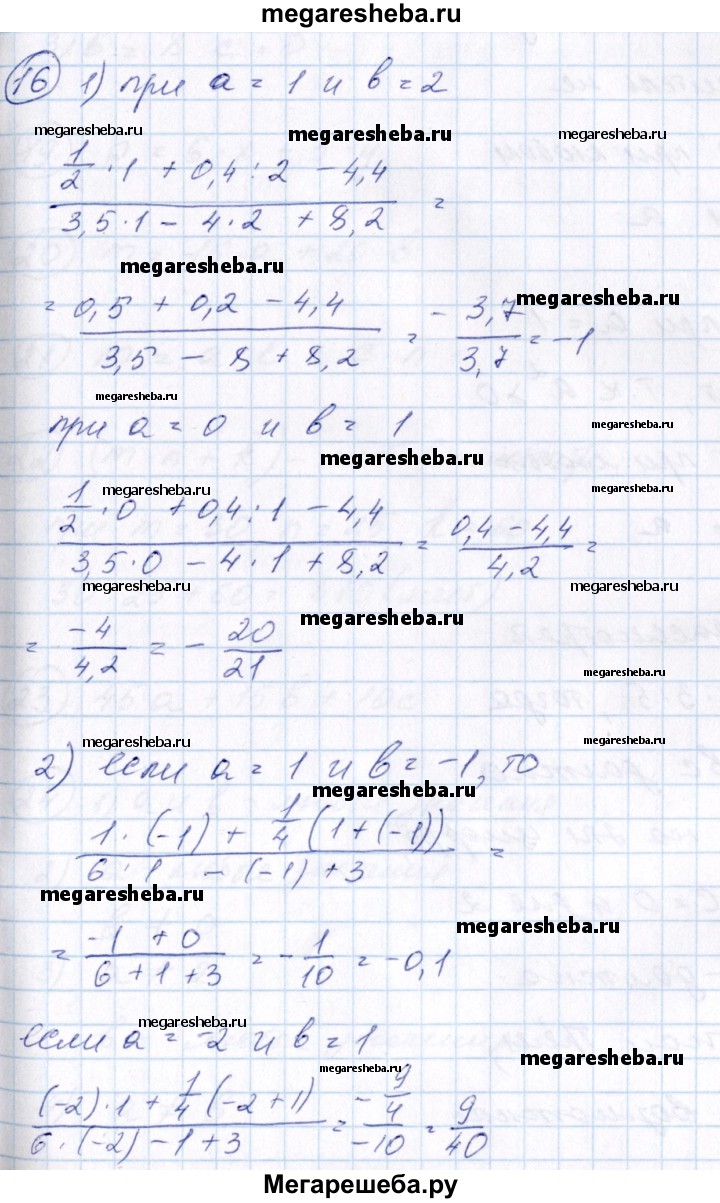 megaresheba.ru
16 1) при a = 1 и b = 2
megaresheba.ru megaresheba.ru megaresheba.ru
1/2 · 1 + 0,4 : 2 - 4,4
3,5 · 1 - 4 · 2 + 8,2 =
megaresheba.ru
= 0,5 + 0,2 - 4,4 / 3,5 - 8 + 8,2 = - 3,7 / 3,7 = -1
megaresheba.ru
megaresheba.ru
при a = 0 и b = 1
megaresheba.ru
megaresheba.ru
megaresheba.ru
1/2 · 0 + 0,4 : 1 - 4,4
3,5 · 0 - 4 · 1 + 8,2 = 0,4 - 4,4 / 4,2 =
megaresheba.ru
megaresheba.ru
= -4 / 4,2 = - 20/21
megaresheba.ru
megaresheba.ru
megaresheba.ru
2) если a = 1 и b = -1, то
megaresheba.ru
1 · (-1) + 1/4 (1 + (-1))
6 · 1 - (-1) + 3 =
megaresheba.ru
megaresheba.ru
= -1 + 0 / 6 + 1 + 3 = - 1/10 = -0,1
megaresheba.ru
если a = -2 и b = 1
megaresheba.ru
megaresheba.ru
(-2) · 1 + 1/4 (-2 + 1) / 6 · (-2) - 1 + 3 = - 9/4 / -10 = 9/40
Мегарешеба.ру